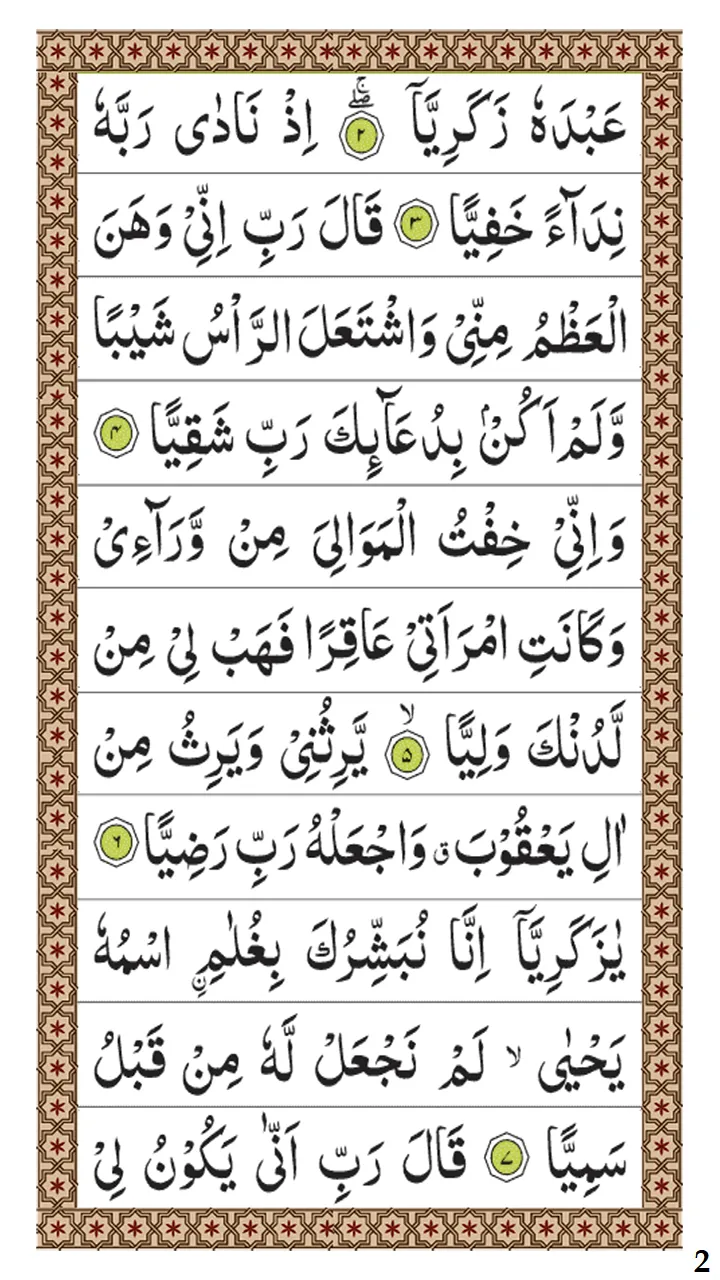 عَبْدَهٗ زَكَرِيَّاۤ ۖۚ ۲ اِذْ نَادٰى رَبَّهٗ
نِدَآءً خَفِيًّا ۳ قَالَ رَبِّ اِنِّيْ وَهَنَ
الْعَظْمُ مِنِّيْ وَاشْتَعَلَ الرَّاْسُ شَيْبًا
وَّلَمْ اَكُنْۢ بِدُعَآىِٕكَ رَبِّ شَقِيًّا ۴
وَاِنِّيْ خِفْتُ الْمَوَالِيَ مِنْ وَّرَآءِيْ
وَكَانَتِ امْرَاَتِيْ عَاقِرًا فَهَبْ لِيْ مِنْ
لَّدُنْكَ وَلِيًّا ۙ ۵ يَّرِثُنِيْ وَيَرِثُ مِنْ
اٰلِ يَعْقُوْبَ ق وَاجْعَلْهُ رَبِّ رَضِيًّا ۶
يٰزَكَرِيَّاۤ اِنَّا نُبَشِّرُكَ بِغُلٰمِ ۟اسْمُهٗ
يَحْيٰى ۙ لَمْ نَجْعَلْ لَّهٗ مِنْ قَبْلُ
سَمِيًّا ۷ قَالَ رَبِّ اَنّٰى يَكُوْنُ لِيْ
2